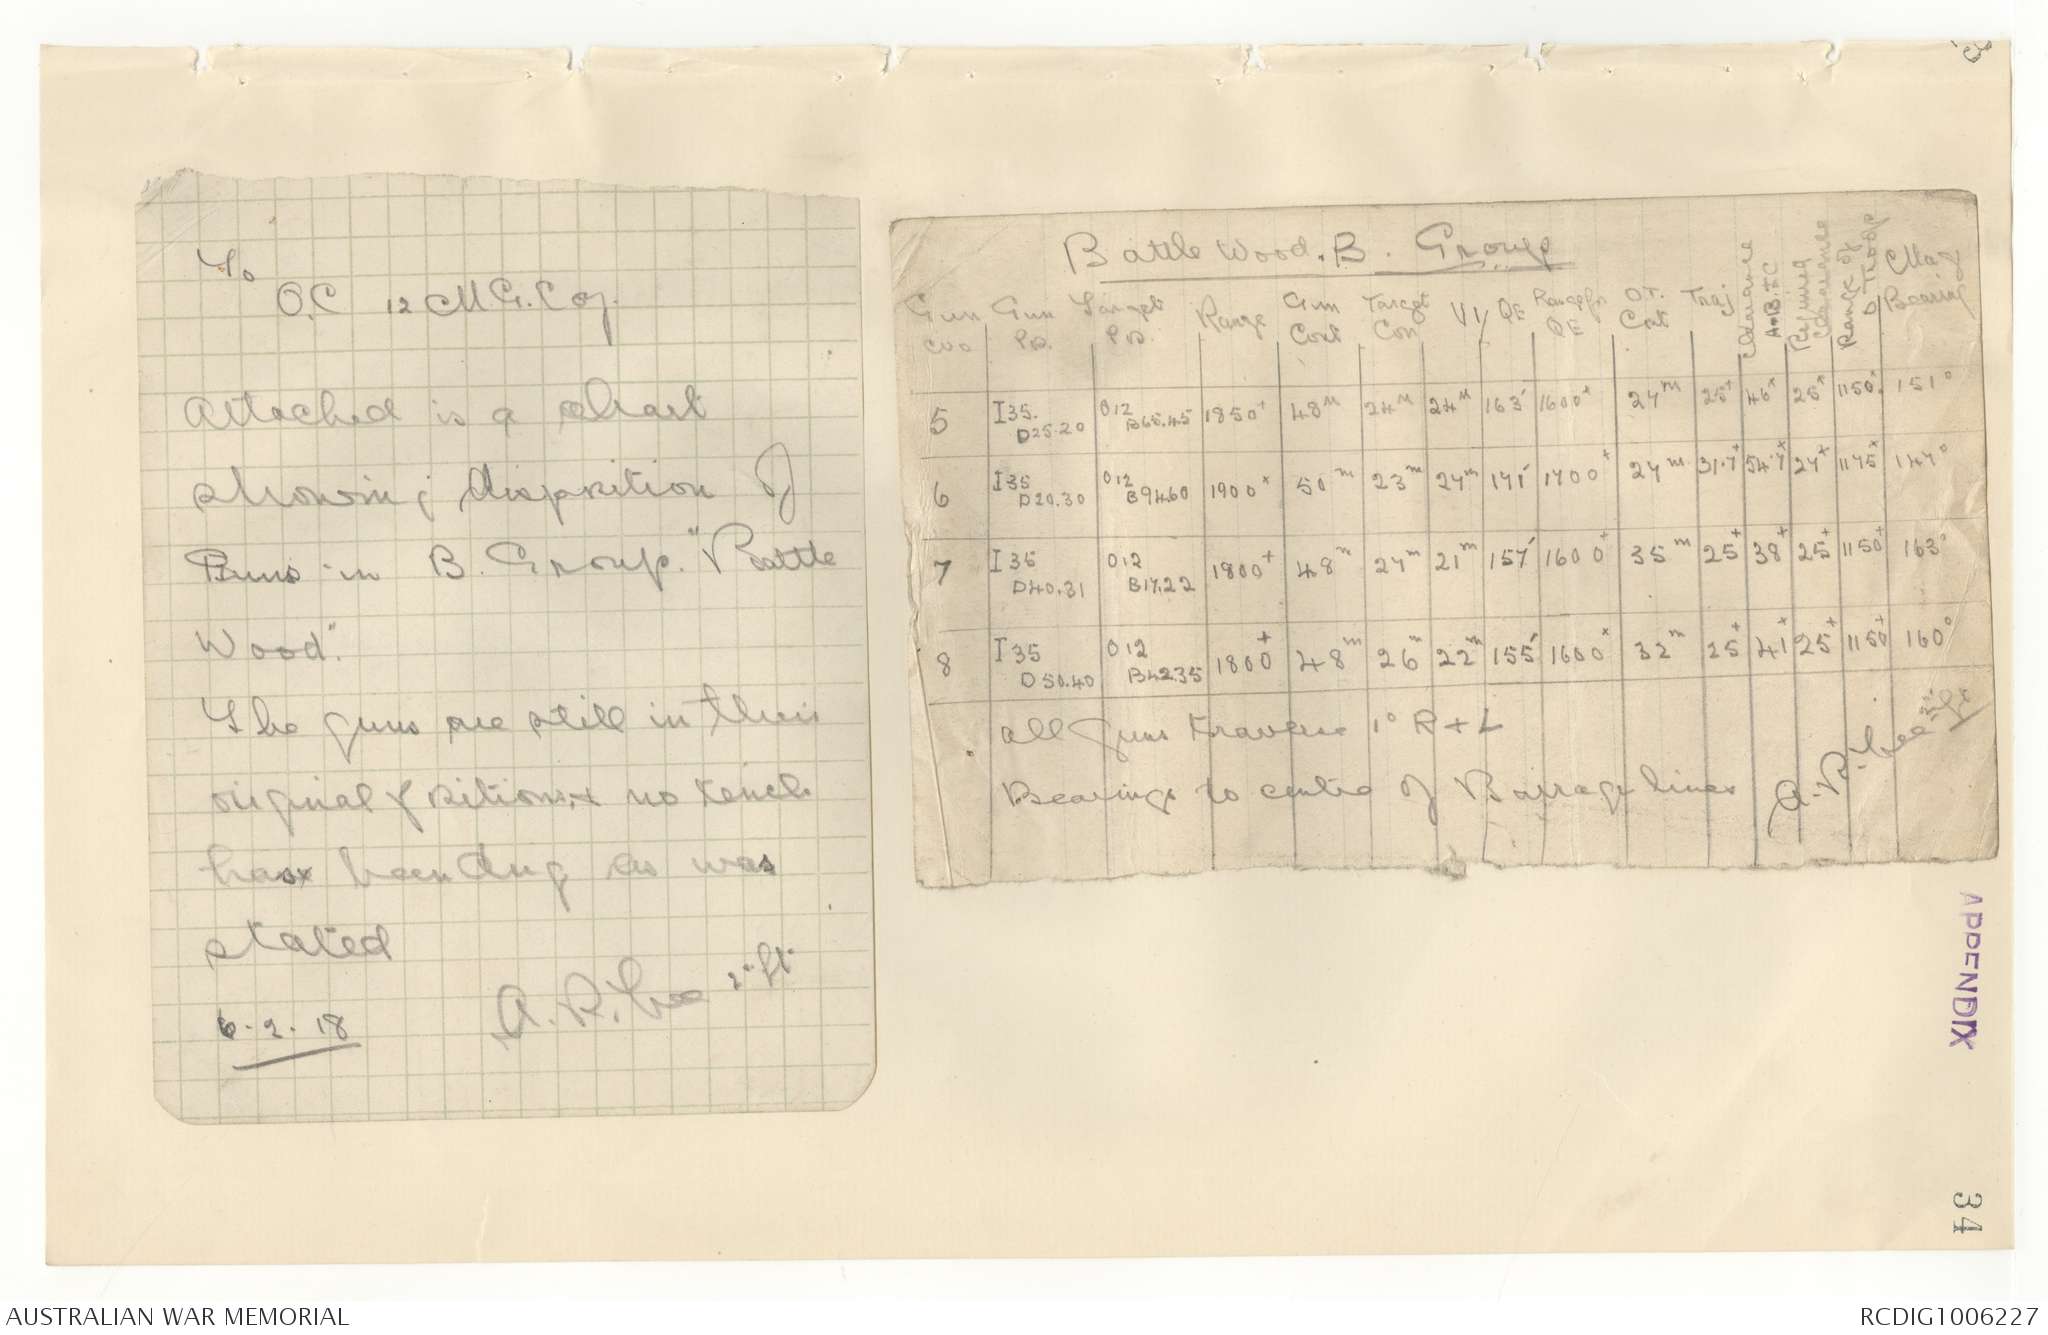 To
O.C 12 M.G. Coy.
Attached is a chart
showing disposition of
Guns in B. Group. "Battle
Wood."
The guns are still in their
original positions, & no trench
has been dug as was
stated
A. R. Lee 2nd Lt.
6.2.18
Battle Wood. B. Group
Gun No | Gun Po. | Target Po. | Range | Gun Cont | Target Con | VI | QE | Range for QE | O.T. Cont | Traj | Clearance A-B+C | Required Clearance | Range of O. Troops | Mag Bearing
5 | I35. D25.20 | O12 B65.45 | 1850+ | 48m | 24m | 24m | 163' | 1600x | 27m | 25+ | 46x | 25x | 1150x | 151°
6 | I35 D20.30 | O12 B94.60 | 1900x | 50m | 23m | 27m | 171' | 1700+ | 27m | 31.7+ | 54.7x | 27x | 1175x | 147°
7 | I35 D40.31 | O12 B17.22 | 1800+ | 48m | 27m | 21m | 157' | 1600+ | 35m | 25+ | 38+ | 25+ | 1150+ | 163°
8 | I35 D50.40 | O12 B42.35 | 1800+ | 48m | 26m | 22m | 155' | 1600x | 32m | 25+ | 41x | 25+ | 1150+ | 160°
All Guns Traverse 1° R + L
Bearings to centre of Barrage lines
A. R. Lee 2nd Lt
APPENDIX
34
AUSTRALIAN WAR MEMORIAL
RCDIG1006227